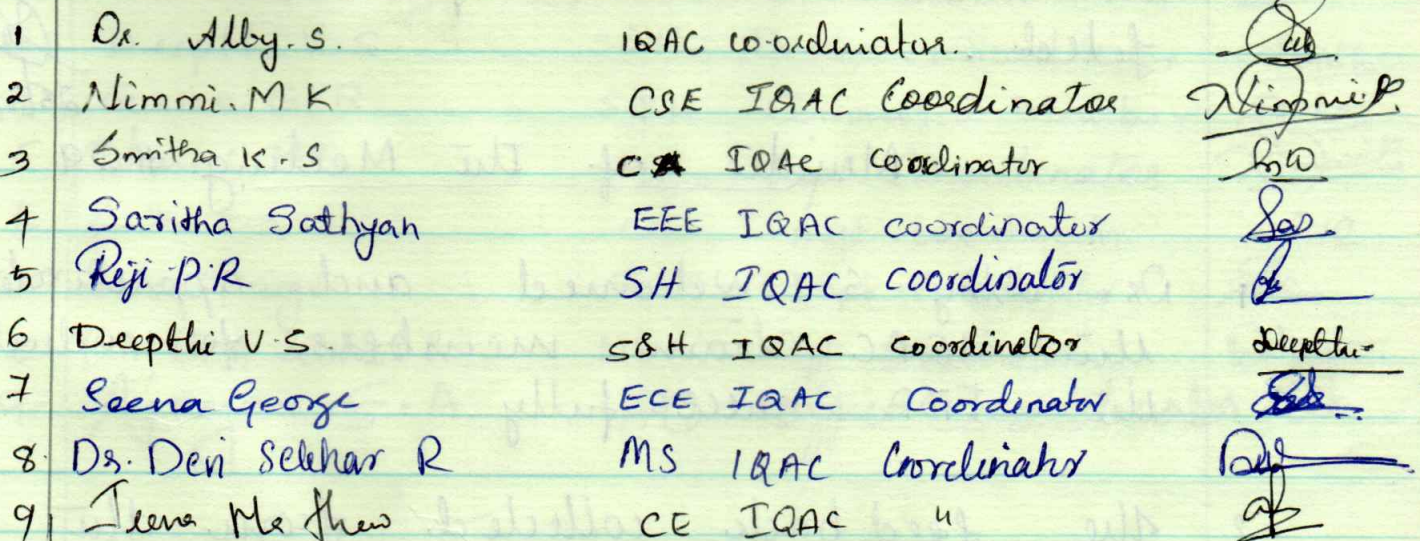 1 Dr. Alby. S. IQAC co-ordiniator.
2 Nimmi. M K CSE IQAC Coordinator
3 Smitha K. S IQAC coordinator
4 Saritha Sathyan EEE IQAC coordinator
5 Reji P.R SH IQAC coordinator
6 Deepthi V.S. S&H IQAC coordinator Deepthi
7 Seena George ECE IQAC Coordinator
8. Dr. Devi Sekhar R MS IQAC Coordinator
9 Mathew CE IQAC "